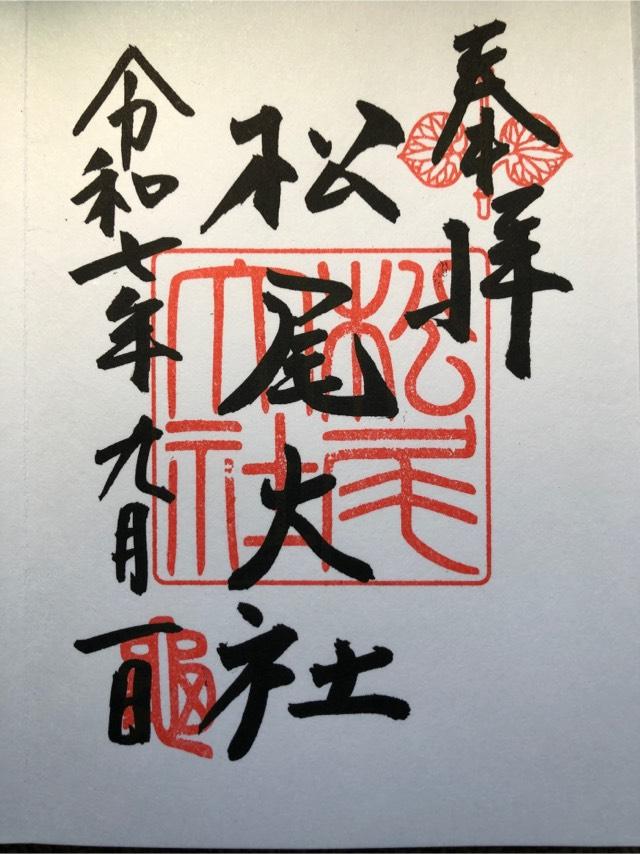 奉拝
松尾大社
令和七年九月一日
松尾大社
亀